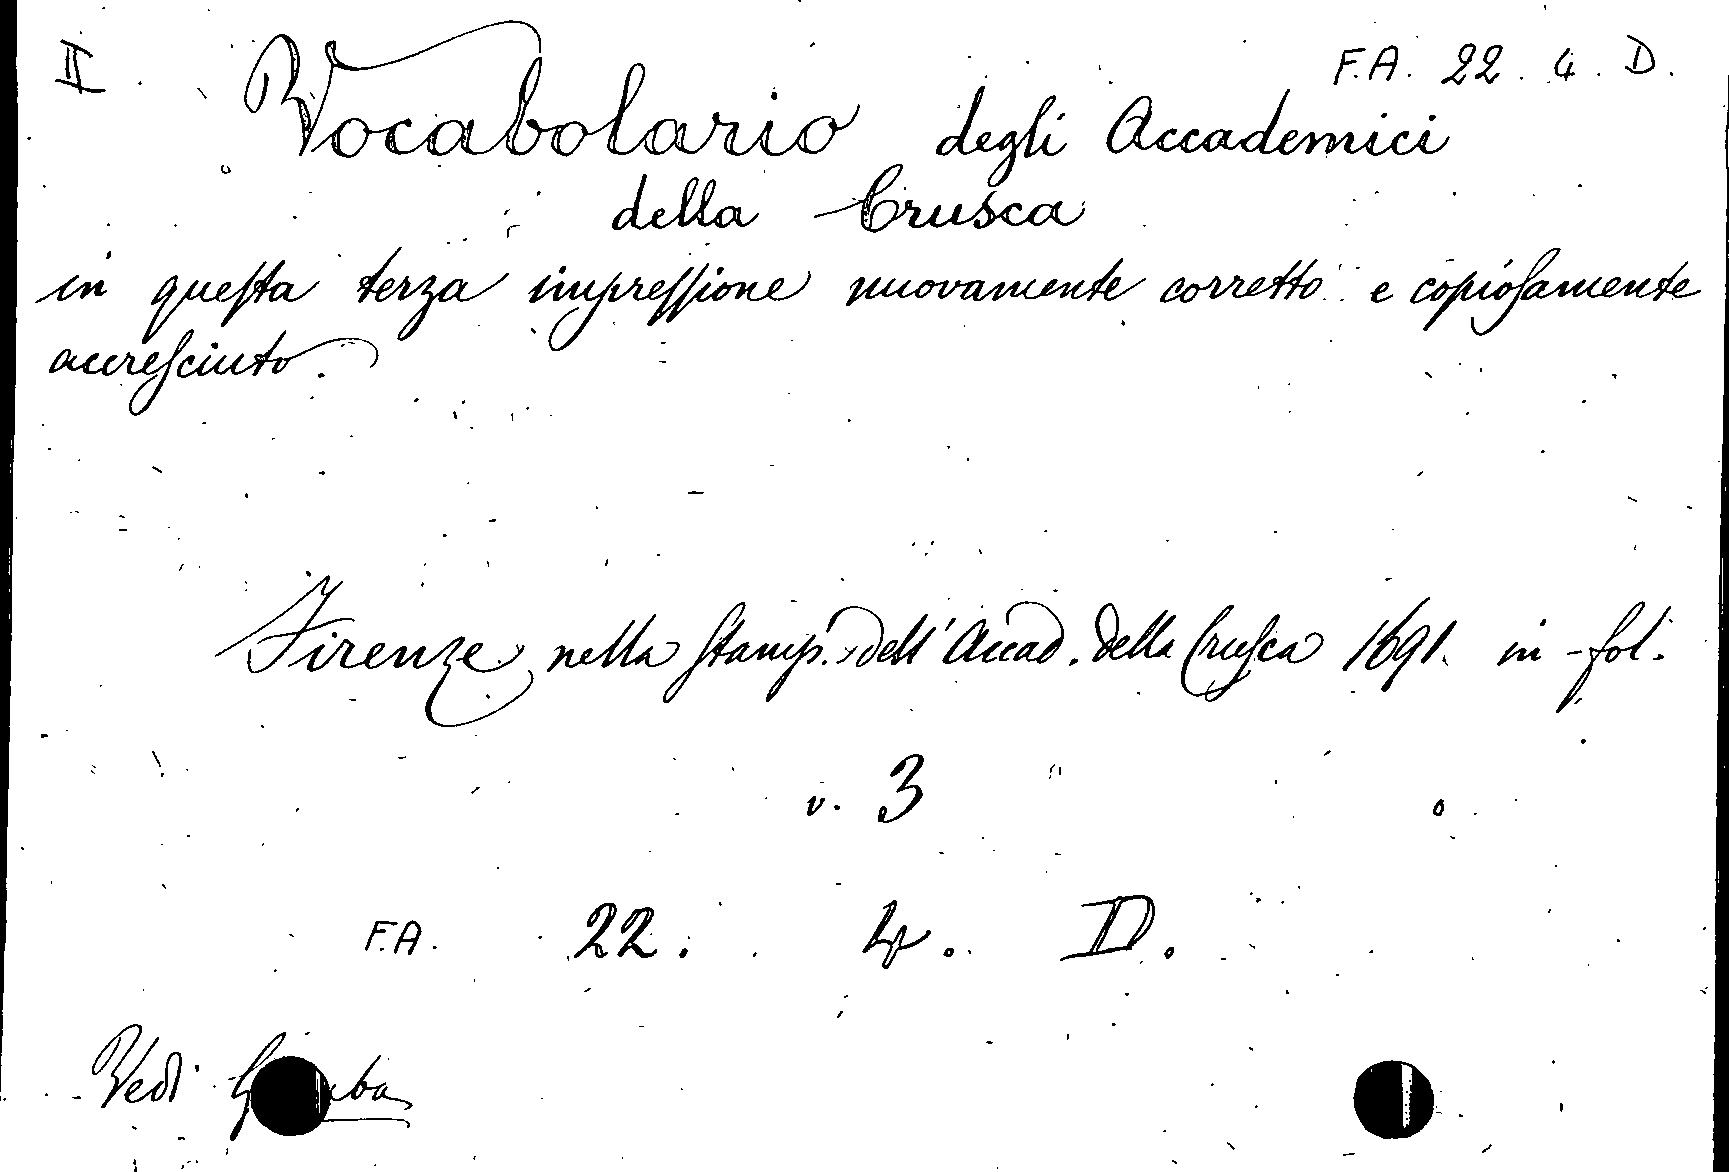 II F.A. 22. 4. D.
Vocabolario degli Accademici
della Crusca
in questa terza impressione nuovamente corretto e copiosamente
accresciuto.
Firenze nella Stamp. dell'Accad. della Crusca 1691. in-fol.
v. 3
F.A. 22. 4. D.
Vedi